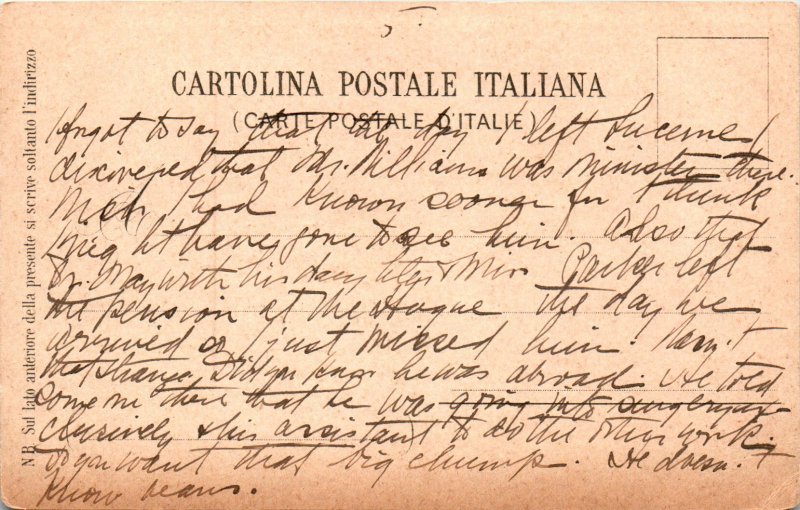 5
CARTOLINA POSTALE ITALIANA
(CARTE POSTALE D'ITALIE)
N B. Sul lato anteriore della presente si scrive soltanto l'indirizzo
I forgot to say that the day I left Lucerne I
discovered that Mr. Williams was minister there.
Wish I had known sooner for I think
I might have gone to see him. Also that
Dr. May with his daughters & Miss Parker left
the pension at the Hague the day we
arrived so I just missed him. Wasn't
that strange. Did you know he was abroad. He told
some one there that he was going into surgery ex-
clusively & his assistant to do the other work.
Do you want that big chump. He doesn't
know beans.